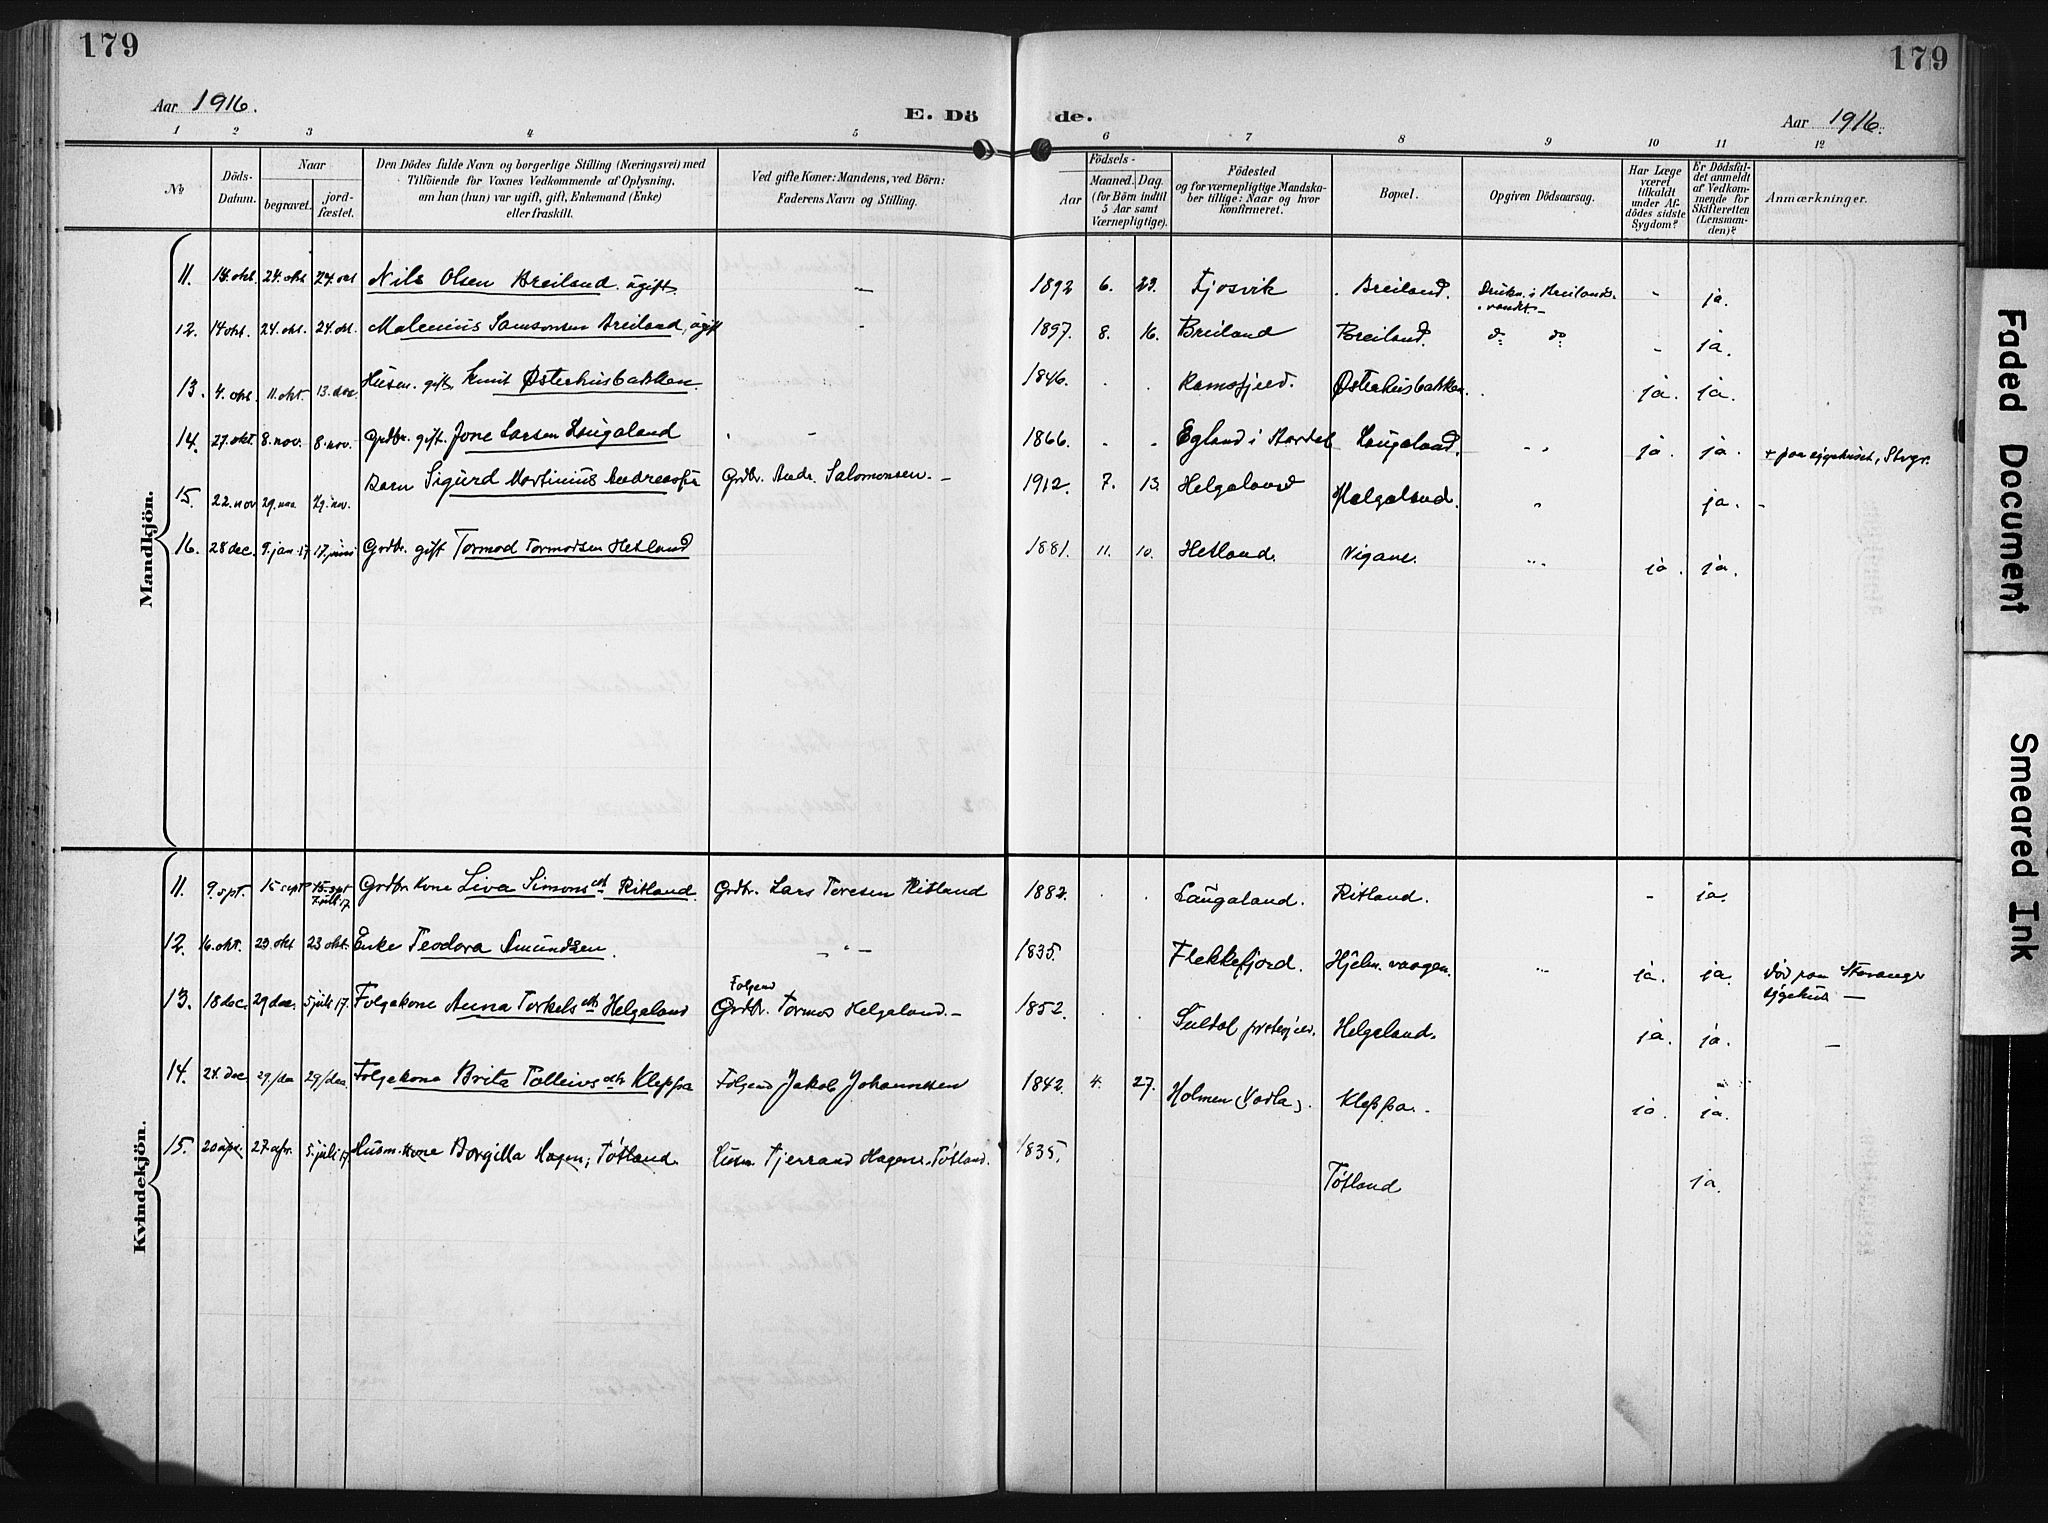 179
179
Aar 1916.
E. Dö de.
Aar 1916.
1 2 3 4 5 6 7 8 9 10 11 12
No
Döds-Datum.
Naar
begravet.
jord-fæstet.
Den Dödes fulde Navn og borgerlige Stilling (Næringsvei) med
Tilföiende for Voxnes Vedkommende af Oplysning,
om han (hun) var ugift, gift, Enkemand (Enke)
eller fraskilt.
Ved gifte Koner: Mandens, ved Börn:
Faderens Navn og Stilling.
Födsels-
Aar
Maaned. Dag
(for Börn indtil
5 Aar samt
Værnepligtige).
Födested
og for værnepligtige Mandska-
ber tillige: Naar og hvor
konfirmeret.
Bopæl.
Opgiven Dödsaarsag.
Har Læge
været
tilkaldt
under Af-
dödes sidste
Sygdom?
Er Dödsfal-
det anmeldt
af Vedkom-
mende for
Skifteretten
(Lensman-
den)?
Anmærkninger.
Mandkjön.
11. 14. okt. 24. okt 24. okt Nils Olsen Breiland. ugift. — 1892 6. 22. Tjosvik Breiland. Drukn. i Breilands-
vandt. - - ja.
12. 14 okt. 24. okt. 24. okt. Malenius Samsonsen Breiland, ugift - 1897. 8. 16. Breiland Breiland. do do - ja.
13. 4. okt. 11. okt. 13. dec. Husm. gift Knut Østerhusbakken. 1846. Ramsfjeld. Østerhusbakken. ja. ja.
14. 27. okt 8. nov. 8. nov. Grdbr. gift. Jone Larsen Laugaland - 1866. Egland i Aardal Laugaland. ja. ja. + paa sygehuset, Stvgr.
15. 22. nov 29. nov 29. nov. Barn Sigurd Martinius Grdbr. Andr. Salomonsen. — 1912. 7. 13. Helgaland Helgaland. ja. -
16. 28 dec. 9. jan. 17 17. juni Grdbr. gift Tormod Tormodsen Hetland 1881. 11. 10. Hetland. Vigane. ja. ja.
Kvindekjön.
11. 9. spt. 15 sept 15. spt
7. juli 17 Grdbr. kone Liva Simonsdt Ritland. Grdbr. Lars Toresen Ritland 1882. Laugaland. Ritland. - ja.
12. 16. okt. 23. okt 23 okt. Enke Teodora Amundsen. - 1835. Flekkefjord. Hjelm. vaagen. ja. ja. död paa Stavanger
sygehus —
13. 18 dec. 29 dec. 5 juli 17. Folgekone Anna Torkelsdt Helgaland Folgemd
Grdbr. Tormod Helgaland. — 1852. Suldal Helgeland. ja. ja. —
14. 24. dec 29/dec 29/dec. Folgekone Brita Tolleivsdtr Kleppa Folgemd Jakob Johannesen 1842. 4. 27. Holmen Kleppa. ja. ja.
15. 20 apr. 27. apr. 5. juli 17 Husm. kone Borgilla Hagen, Tøtland. Husm. Tjerrand Hagene. Tøtland. 1835. Tøtland ja.
Faded Document
Smeared Ink